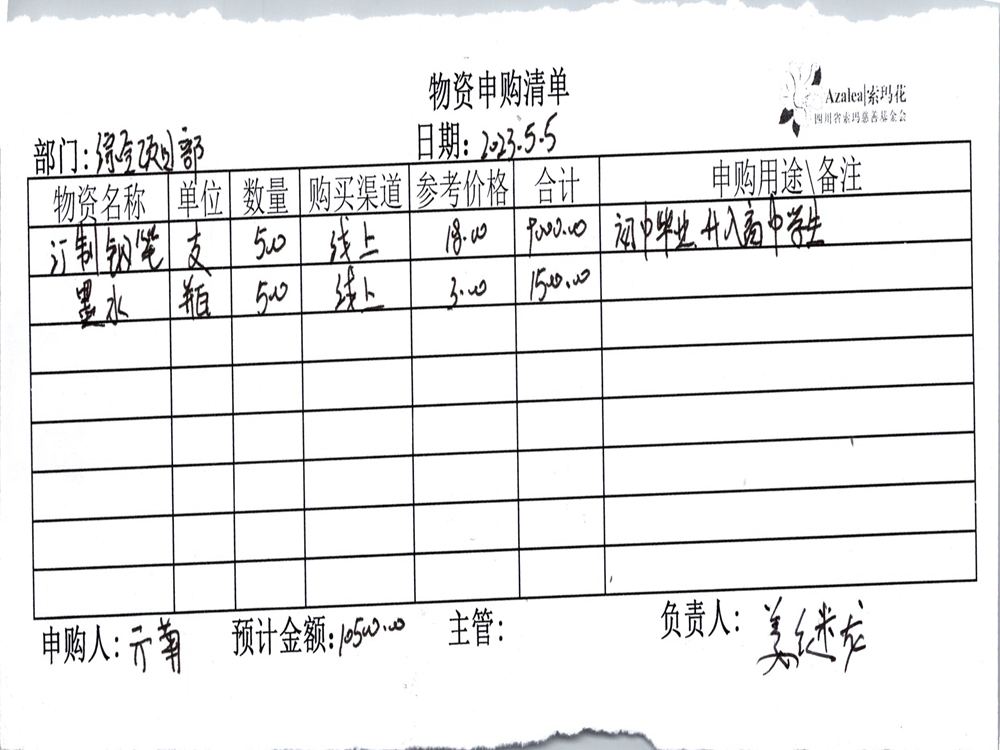 物资申购清单
Azalea|索玛花
四川省索玛慈善基金会
部门:综合项目部 日期:2023.5.5
物资名称 单位 数量 购买渠道 参考价格 合计 申购用途\备注
订制钢笔 支 500 线上 18.00 9000.00 初中毕业升入高中学生
墨水 瓶 500 线上 3.00 1500.00
申购人: 预计金额:10500.00 主管: 负责人: